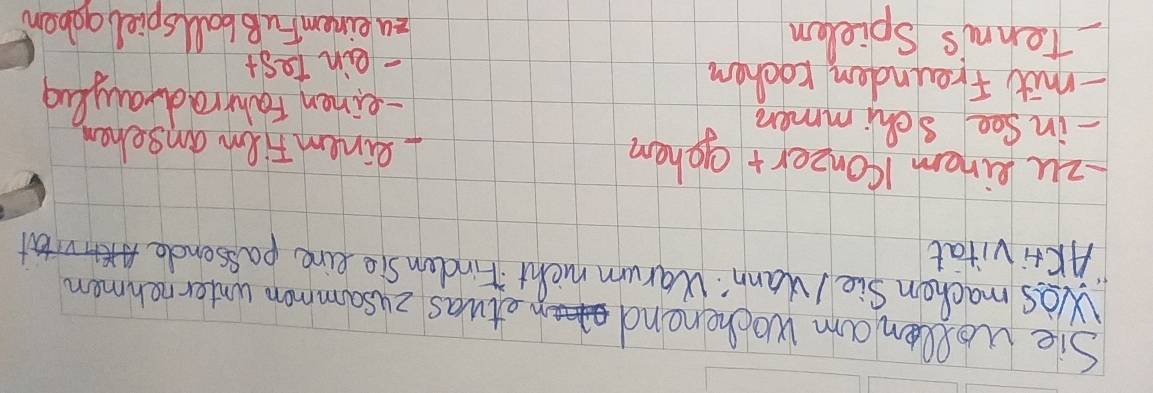 Sie wollen am Wochenend etwas zusammen unternehmen
Was machen Sie, Wann. Warum nicht. Finden Sie eine passende Aktivität
Aktivität
- zu einem Konzert gehen
- in See schimmen
- mit Freunden kochen
- Tennis Spielen
- einem Film ansehen
- einen Fahrradrausflug
- ein Test
zu einem Fußballspiel gehen